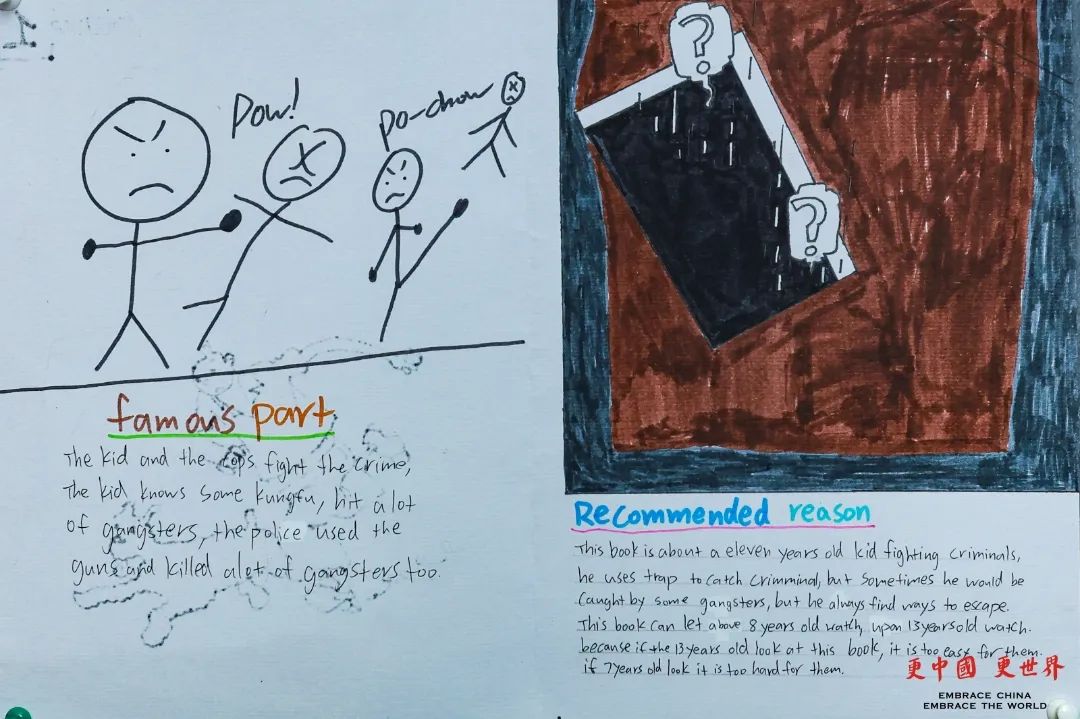 Pow!
po-chow
famous part
The kid and the cops fight the crime,
The kid knows some kungfu, hit alot
of gangsters, the police used the
guns and killed alot of gangsters too.
?
?
Recommended reason
This book is about a eleven years old kid fighting criminals,
he uses trap to catch crimminal, but sometimes he would be
caught by some gangsters, but he always find ways to escape.
This book can let above 8 years old watch, upon 13 years old watch.
because if the 13 years old look at this book, it is too easy for them.
if 7 years old look it is too hard for them.
更中國 更世界
EMBRACE CHINA
EMBRACE THE WORLD